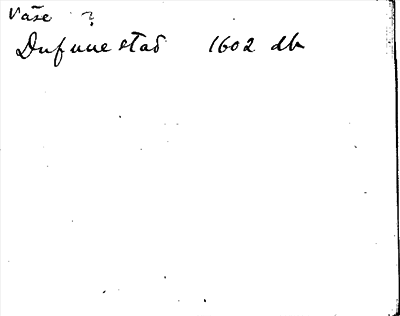 Vase ?
Dufvuestad 1602 db